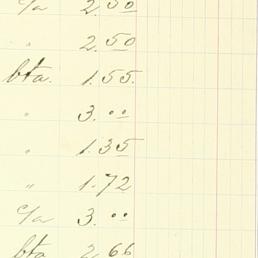 c/a 2.50
" 2.50
bta. 1.55.
" 3.00
" 1.35
" 1.72
c/a 3.00
bta 2.66